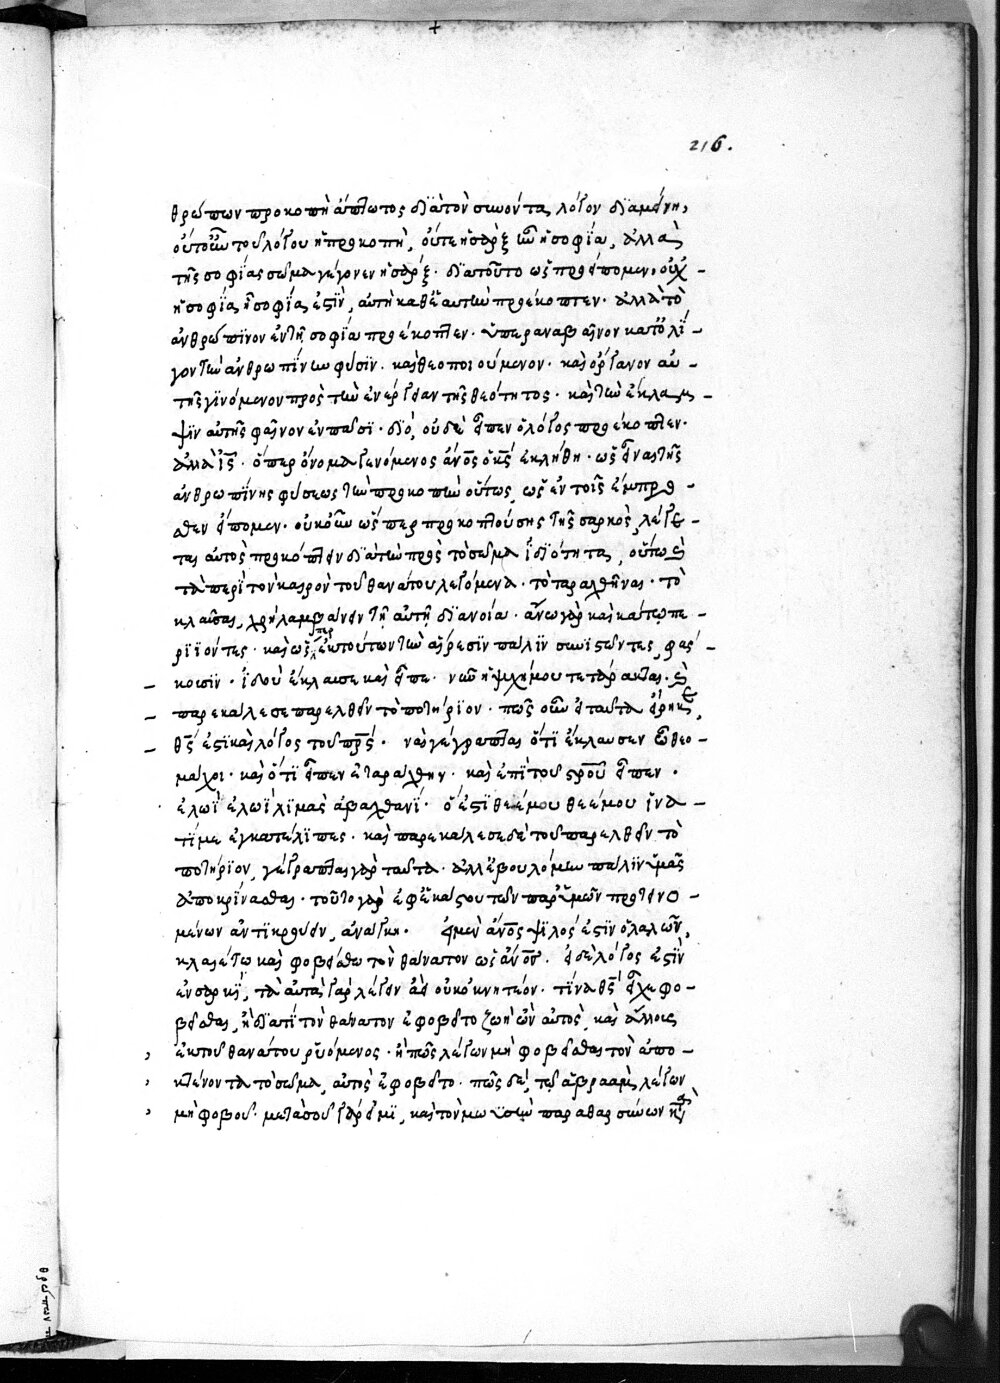 216.
θρώπων προκοπὴ ἄπτωτος διὰ τὸν συνόντα λόγον διαμένη,
οὔτ' οὖν τοῦ λόγου ἡ προκοπὴ, οὔτε ἡ σὰρξ ἦν ἡ σοφία, ἀλλὰ
τῆς σοφίας σῶμα γέγονεν ἡ σάρξ· διὰ τοῦτο ὡς προείπομεν, οὐχ
ἡ σοφία, ᾗ σοφία ἐστὶν, αὐτὴ καθ' ἑαυτὴν προέκοπτεν· ἀλλὰ τὸ
ἀνθρώπινον ἐν τῇ σοφία προέκοπτεν· ὑπεραναβαῖνον κατ' ὀλί-
γον τὴν ἀνθρωπίνην φύσιν· καὶ θεοποιούμενον· καὶ ὄργανον αὐ-
τῆς γινόμενον πρὸς τὴν ἐνέργειαν τῆς θεότητος· καὶ τὴν ἔκλαμ-
ψιν αὐτῆς φαῖνον ἐν πᾶσι· διὸ, οὐδὲ εἶπεν ὁ λόγος προέκοπτεν·
ἀλλὰ ὁ ις· ὅπερ ὄνομα γενόμενος ἄνος ὁ κς ἐκλήθη· ὡς εἶναι τῆς
ἀνθρωπίνης φύσεως τὴν προκοπὴν οὕτως, ὡς ἐν τοῖς ἔμπρο-
σθεν εἴπομεν· οὐκοῦν ὥσπερ προκοπτούσης τῆς σαρκὸς, λέγε-
ται αὐτὸς προκόπτειν διὰ τὴν πρὸς τὸ σῶμα ἰδιότητα, οὕτω καὶ
τὰ περὶ τὸν καιρὸν τοῦ θανάτου λεγόμενα· τὸ ταραχθῆναι· τὸ
κλαῦσαι, χρὴ λαμβάνειν τῇ αὐτῇ διανοία· ἄνω γὰρ καὶ κάτω πε-
ριϊόντες· καὶ ὥσπερ ἐκ τούτων τὴν αἵρεσιν πάλιν συνιστῶντες, φάσ-
κουσιν· ἰδοὺ ἔκλαυσε καὶ εἶπε· νῦν ἡ ψυχή μου τετάρακται· καὶ
παρεκάλεσε παρελθεῖν τὸ ποτήριον· πῶς οὖν εἰ ταῦτα εἴρηκε,
θς ἐστὶ καὶ λόγος τοῦ πρς· ναὶ γέγραπται ὅτι ἔκλαυσεν ὦ θεο-
μάχοι· καὶ ὅτι εἶπεν ἐταράχθην· καὶ ἐπὶ τοῦ στροῦ εἶπεν·
ἐλωῒ ἐλωῒ λιμᾶς ἀβαχθανί· ὅ ἐστι θεέ μου θεέ μου ἵνα-
τί με ἐγκατέλιπες· καὶ παρεκάλεσε δὲ τοῦ παρελθεῖν τὸ
ποτήριον, γέγραπται γὰρ ταῦτα· ἀλλ' ἐβουλόμην πάλιν ὑμᾶς
ἀποκρίνασθαι· τοῦτο γὰρ ἐφ' ἑκάστου τῶν παρ' ὑμῶν προτεινο-
μένων ἀντικρούειν, ἀνάγκη. εἰ μὲν ἄνος ψιλός ἐστιν ὁ λαλῶν,
κλαιέτω καὶ φοβείσθω τὸν θάνατον ὡς ἄνος· εἰ δὲ λόγος ἐστὶν
ἐν σαρκὶ, τὰ αὐτὰ γὰρ λέγειν ἀεὶ οὐκ ὀκνητέον· τίνα θς εἶχε φο-
βεῖσθαι, ἢ διατί τὸν θάνατον ἐφοβεῖτο ζωὴ ὢν αὐτὸς, καὶ ἄλλους
ἐκ τοῦ θανάτου ῥυόμενος· ἢ πῶς λέγων μὴ φοβεῖσθαι τὸν ἀπο-
κτένοντα τὸ σῶμα, αὐτὸς ἐφοβεῖτο· πῶς δὲ, τῷ ἀβραὰμ λέγων
μὴ φοβοῦ· μετὰ σοῦ γάρ εἰμι, καὶ τὸν μωϋσῆν παραθαρσύνων κατὰ